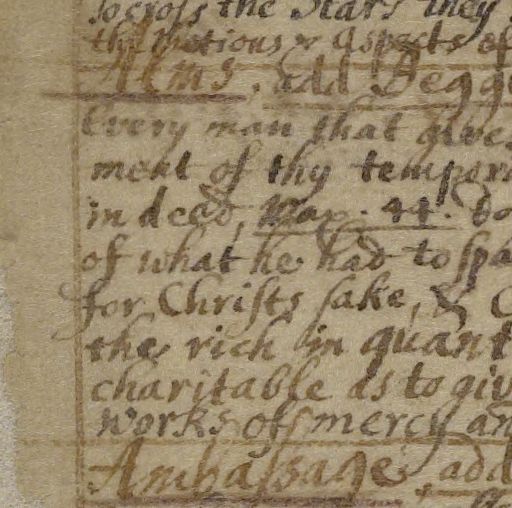 to cross the Stars they
the Motions & Aspects of
Alms, add Begg
Every man that gives
ment of thy tempor
in deed, Max. 44. Do
of what he had to spa
for Christs sake, & C
the rich in quant
charitable as to giv
works of mercy an
Ambassage, add